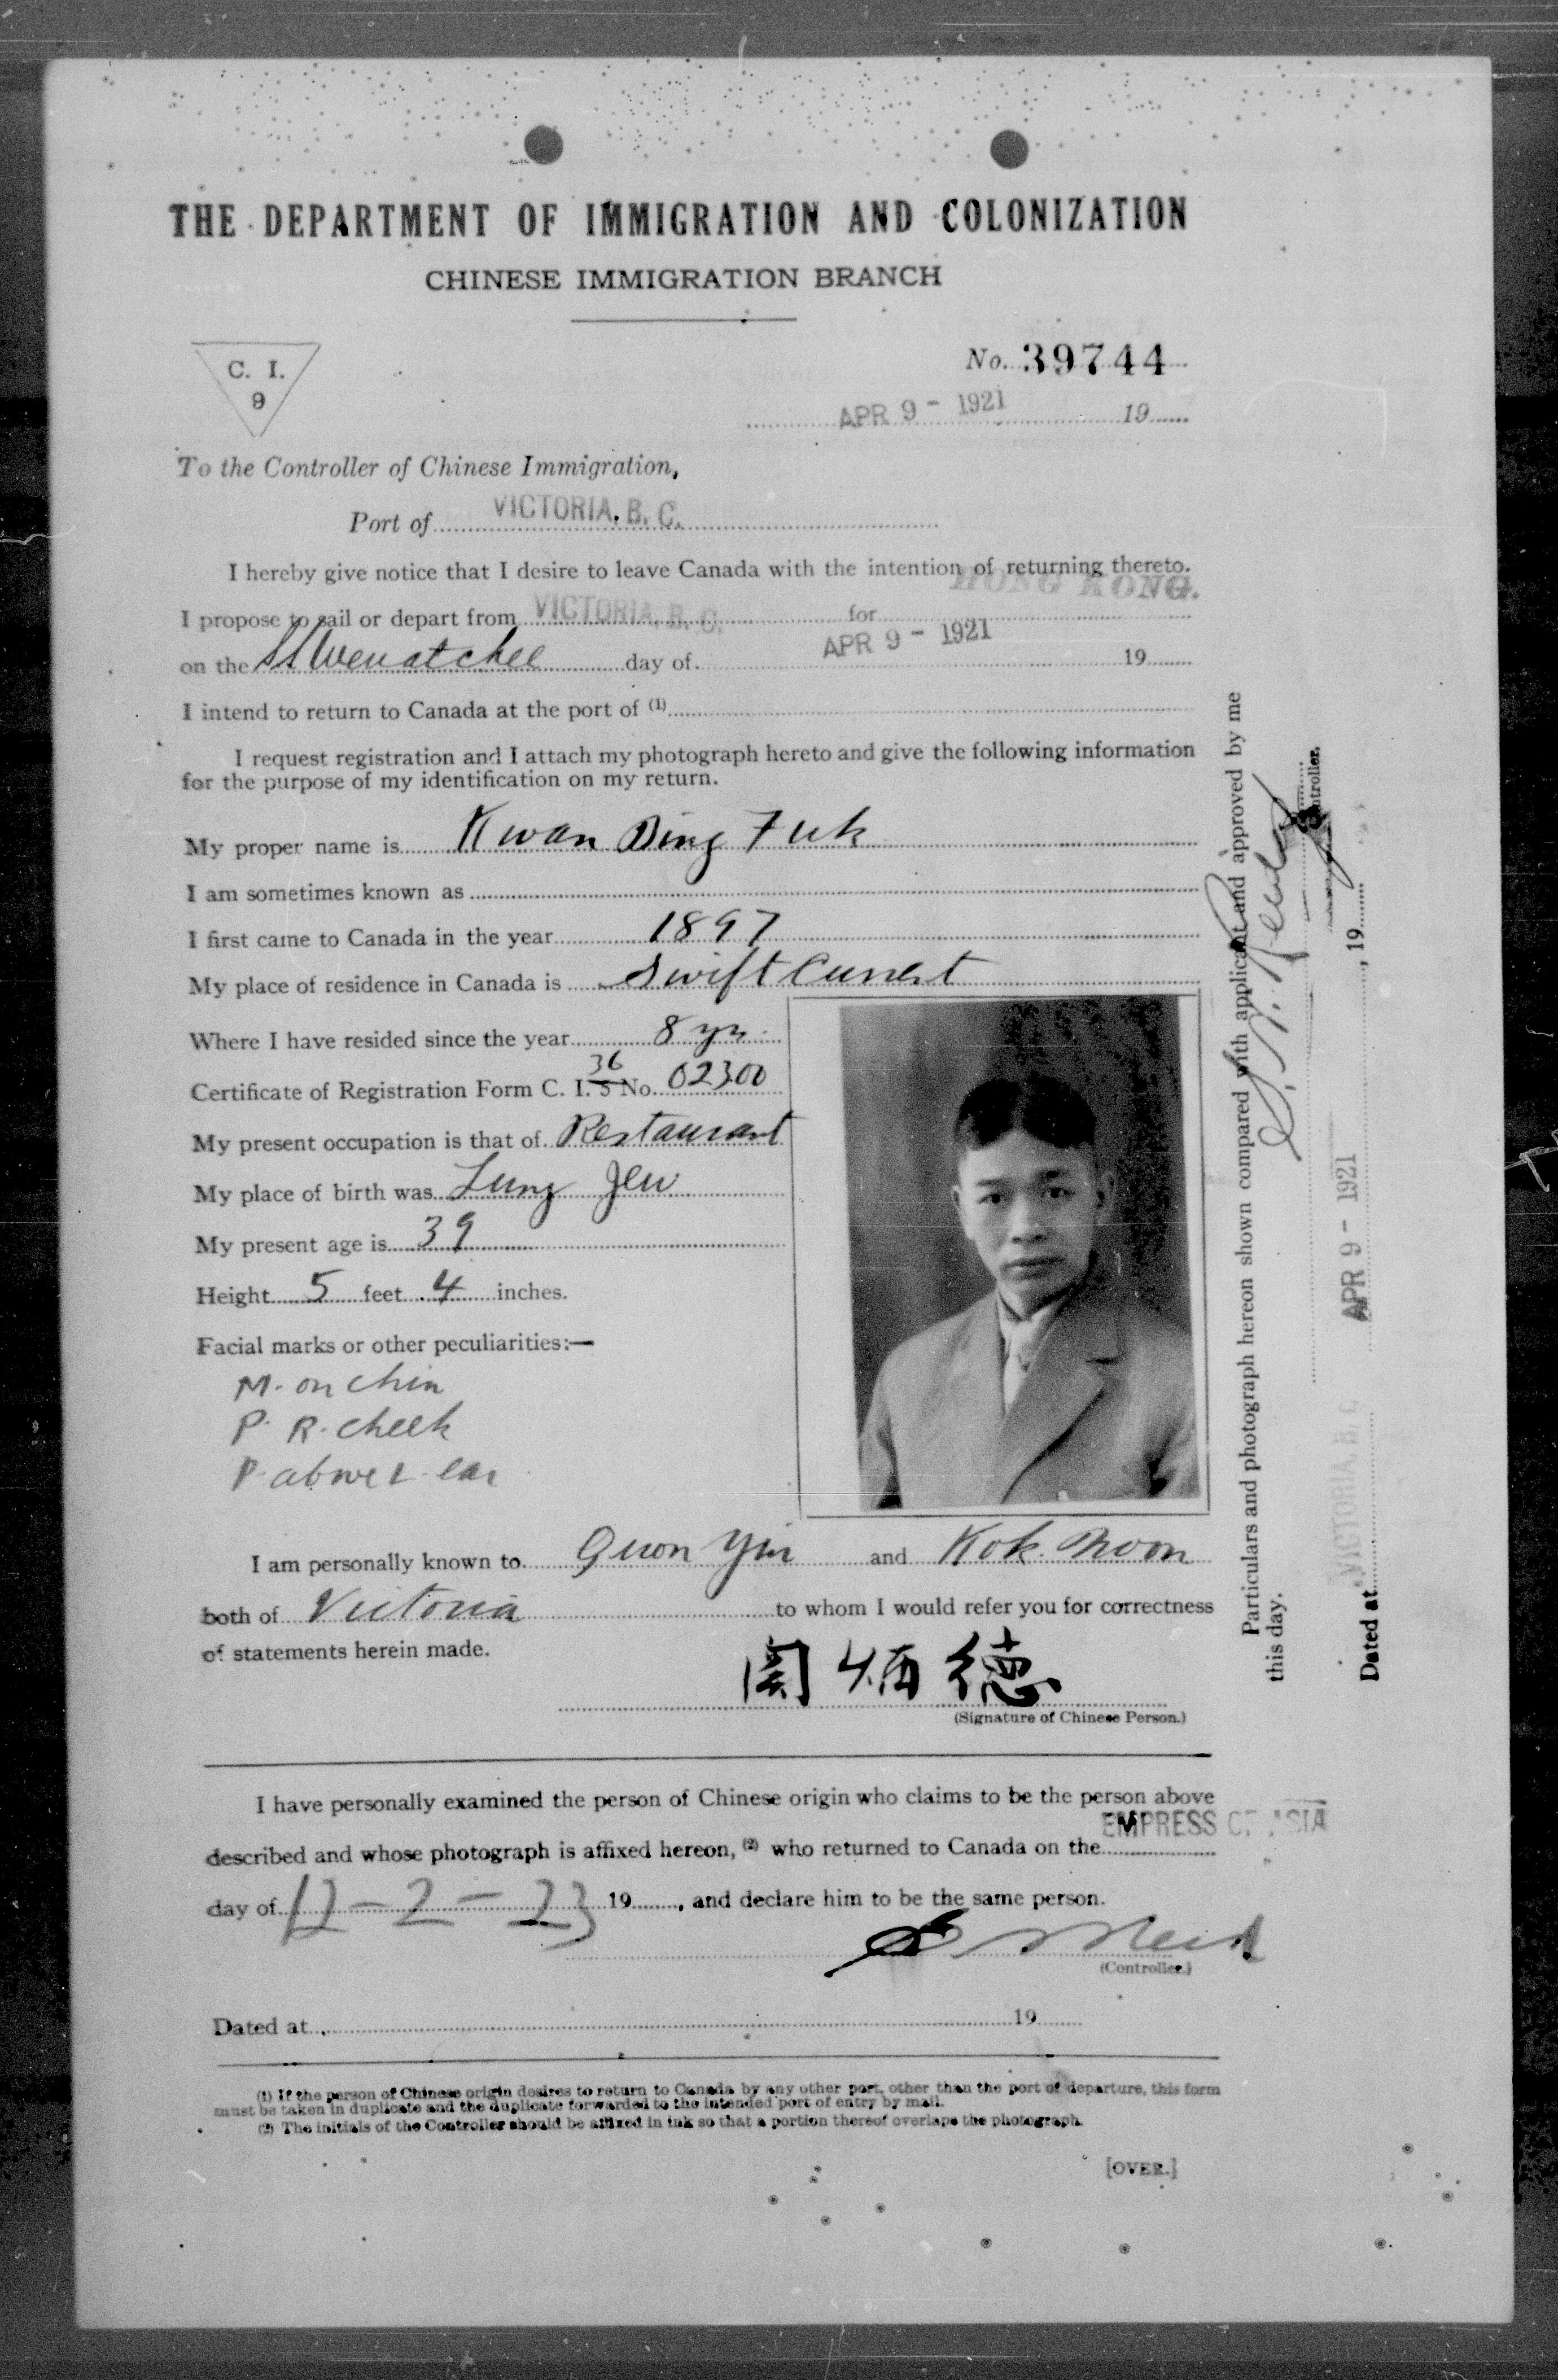 THE DEPARTMENT OF IMMIGRATION AND COLONIZATION
CHINESE IMMIGRATION BRANCH
C. I.
9
No. 39744
APR 9 - 1921 19
To the Controller of Chinese Immigration,
Port of VICTORIA, B. C.
I hereby give notice that I desire to leave Canada with the intention of returning thereto.
HONG KONG.
I propose to sail or depart from VICTORIA, B. C. for
on the SS Wenatchee day of APR 9 - 1921 19
I intend to return to Canada at the port of (1)
I request registration and I attach my photograph hereto and give the following information
for the purpose of my identification on my return.
My proper name is Kwan Bing Fuk
I am sometimes known as
I first came to Canada in the year 1897
My place of residence in Canada is Swift Current
Where I have resided since the year 8 yrs.
36
Certificate of Registration Form C. I. 5 No. 02300
My present occupation is that of Restaurant
My place of birth was Lung Jew
My present age is 39
Height 5 feet 4 inches.
Facial marks or other peculiarities:—
M. on chin
P. R. cheek
P. above L. ear
I am personally known to Quon Yin and Kok Moon
both of Victoria to whom I would refer you for correctness
of statements herein made.
関炳德
(Signature of Chinese Person.)
I have personally examined the person of Chinese origin who claims to be the person above
EMPRESS OF ASIA
described and whose photograph is affixed hereon, (2) who returned to Canada on the
day of 12-2-23 19, and declare him to be the same person.
(Controller.)
Dated at 19
(1) If the person of Chinese origin desires to return to Canada by any other port, other than the port of departure, this form
must be taken in duplicate and the duplicate forwarded to the intended port of entry by mail.
(2) The initials of the Controller should be affixed in ink so that a portion thereof overlaps the photograph.
[OVER.]
Particulars and photograph hereon shown compared with applicant and approved by me
this day.
Controller.
Dated at VICTORIA, B. C. APR 9 - 1921, 19